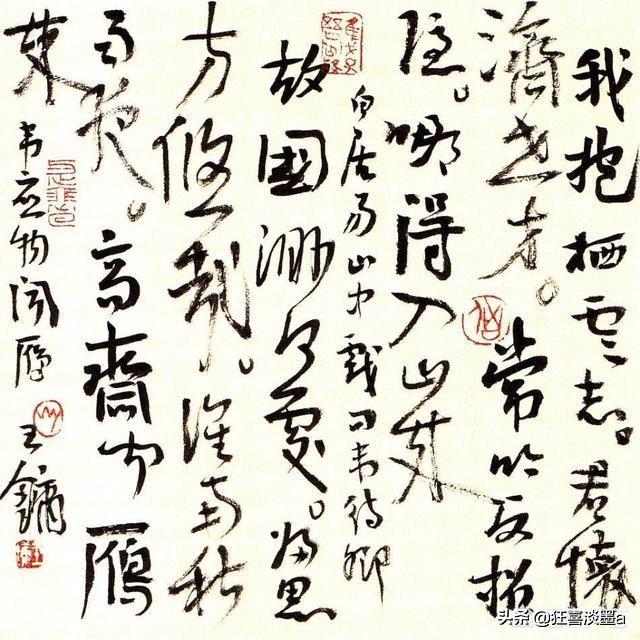 我抱栖雲志。君懷
濟世才。常吟反招
隐。哪得入山来
白居易山中戲问韦侍御
故國渺何處。归思
方悠哉。淮南秋
雨夜。高齋闻雁
来
韦应物闻雁
王鏞
头条 @狂喜淡墨a